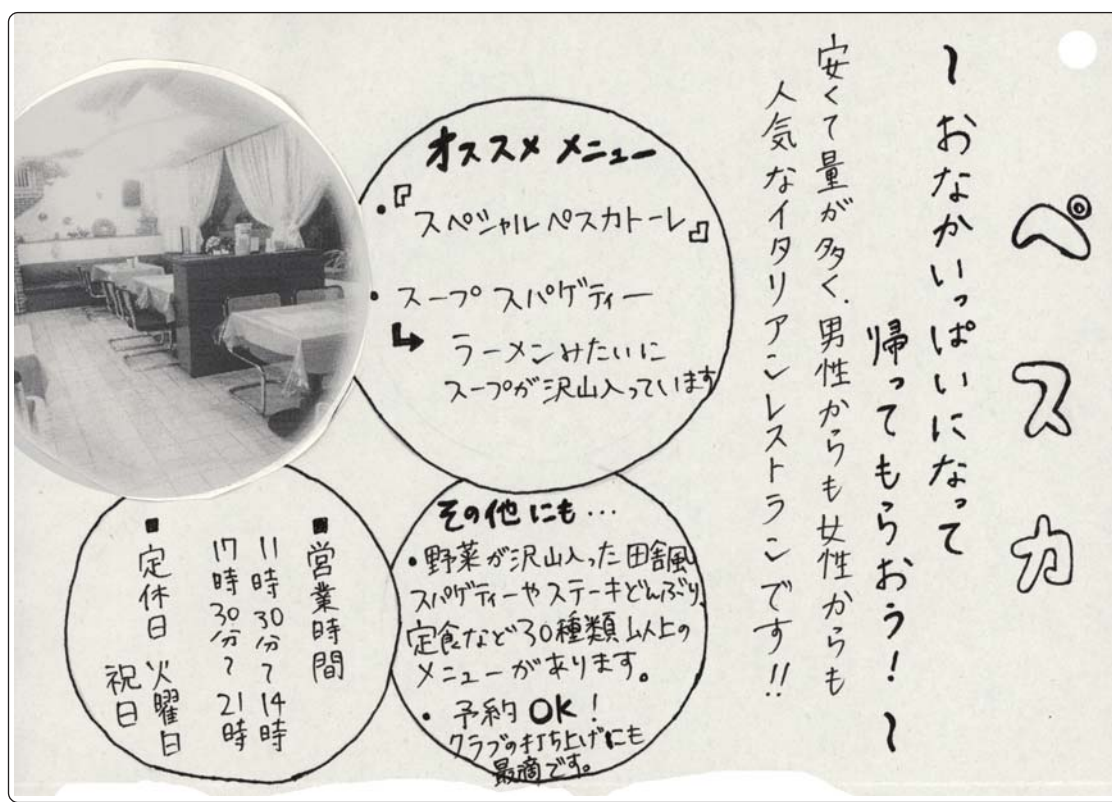 ペスカ
~おなかいっぱいになって
帰ってもらおう!~
安くて量が多く、男性からも女性からも
人気なイタリアンレストランです!!
オススメメニュー
・『スペシャルペスカトーレ』
・スープスパゲティー
↳ラーメンみたいに
スープが沢山入っています
その他にも…
・野菜が沢山入った田舎風
スパゲティーやステーキどんぶり、
定食など30種類以上の
メニューがあります。
・予約OK!
クラブの打ち上げにも
最適です。
■営業時間
11時30分~14時
17時30分~21時
■定休日 火曜日
祝日